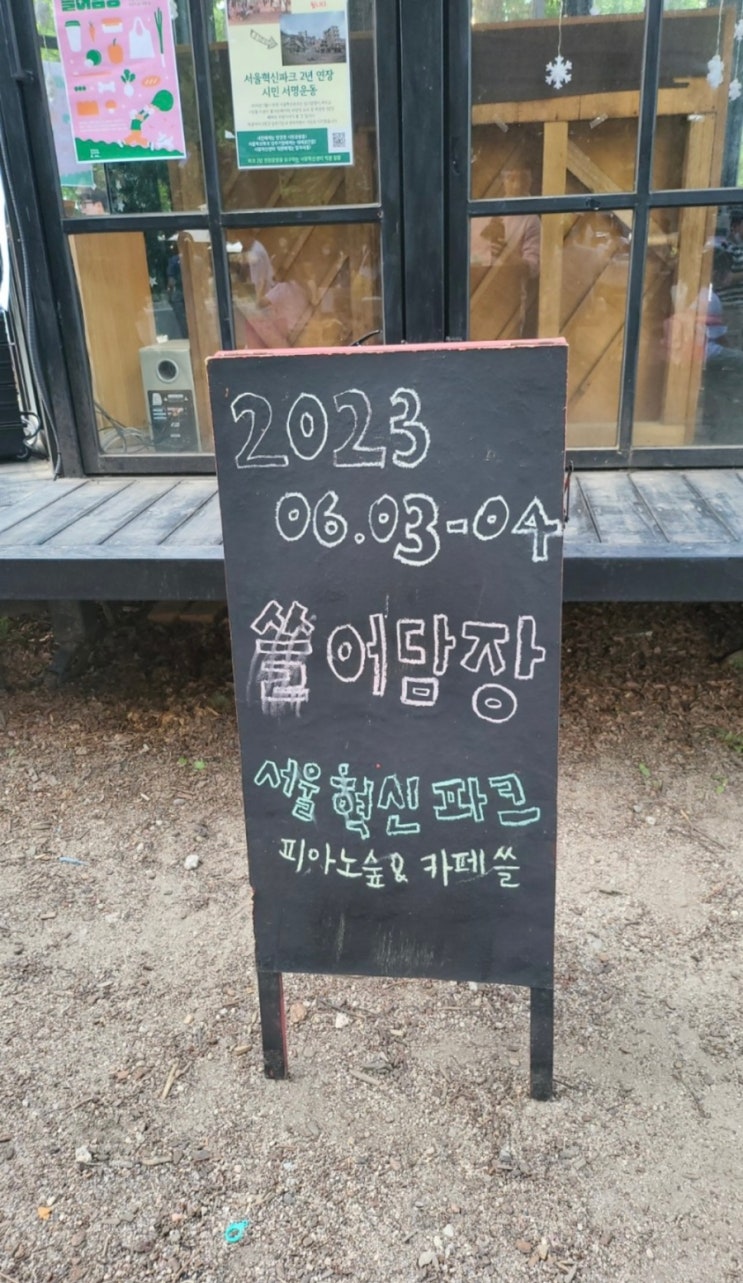 서울혁신파크 2년 연장
시민 서명운동
2023
06.03-04
쓸어담장
서울혁신파크
피아노숲& 카페쓸